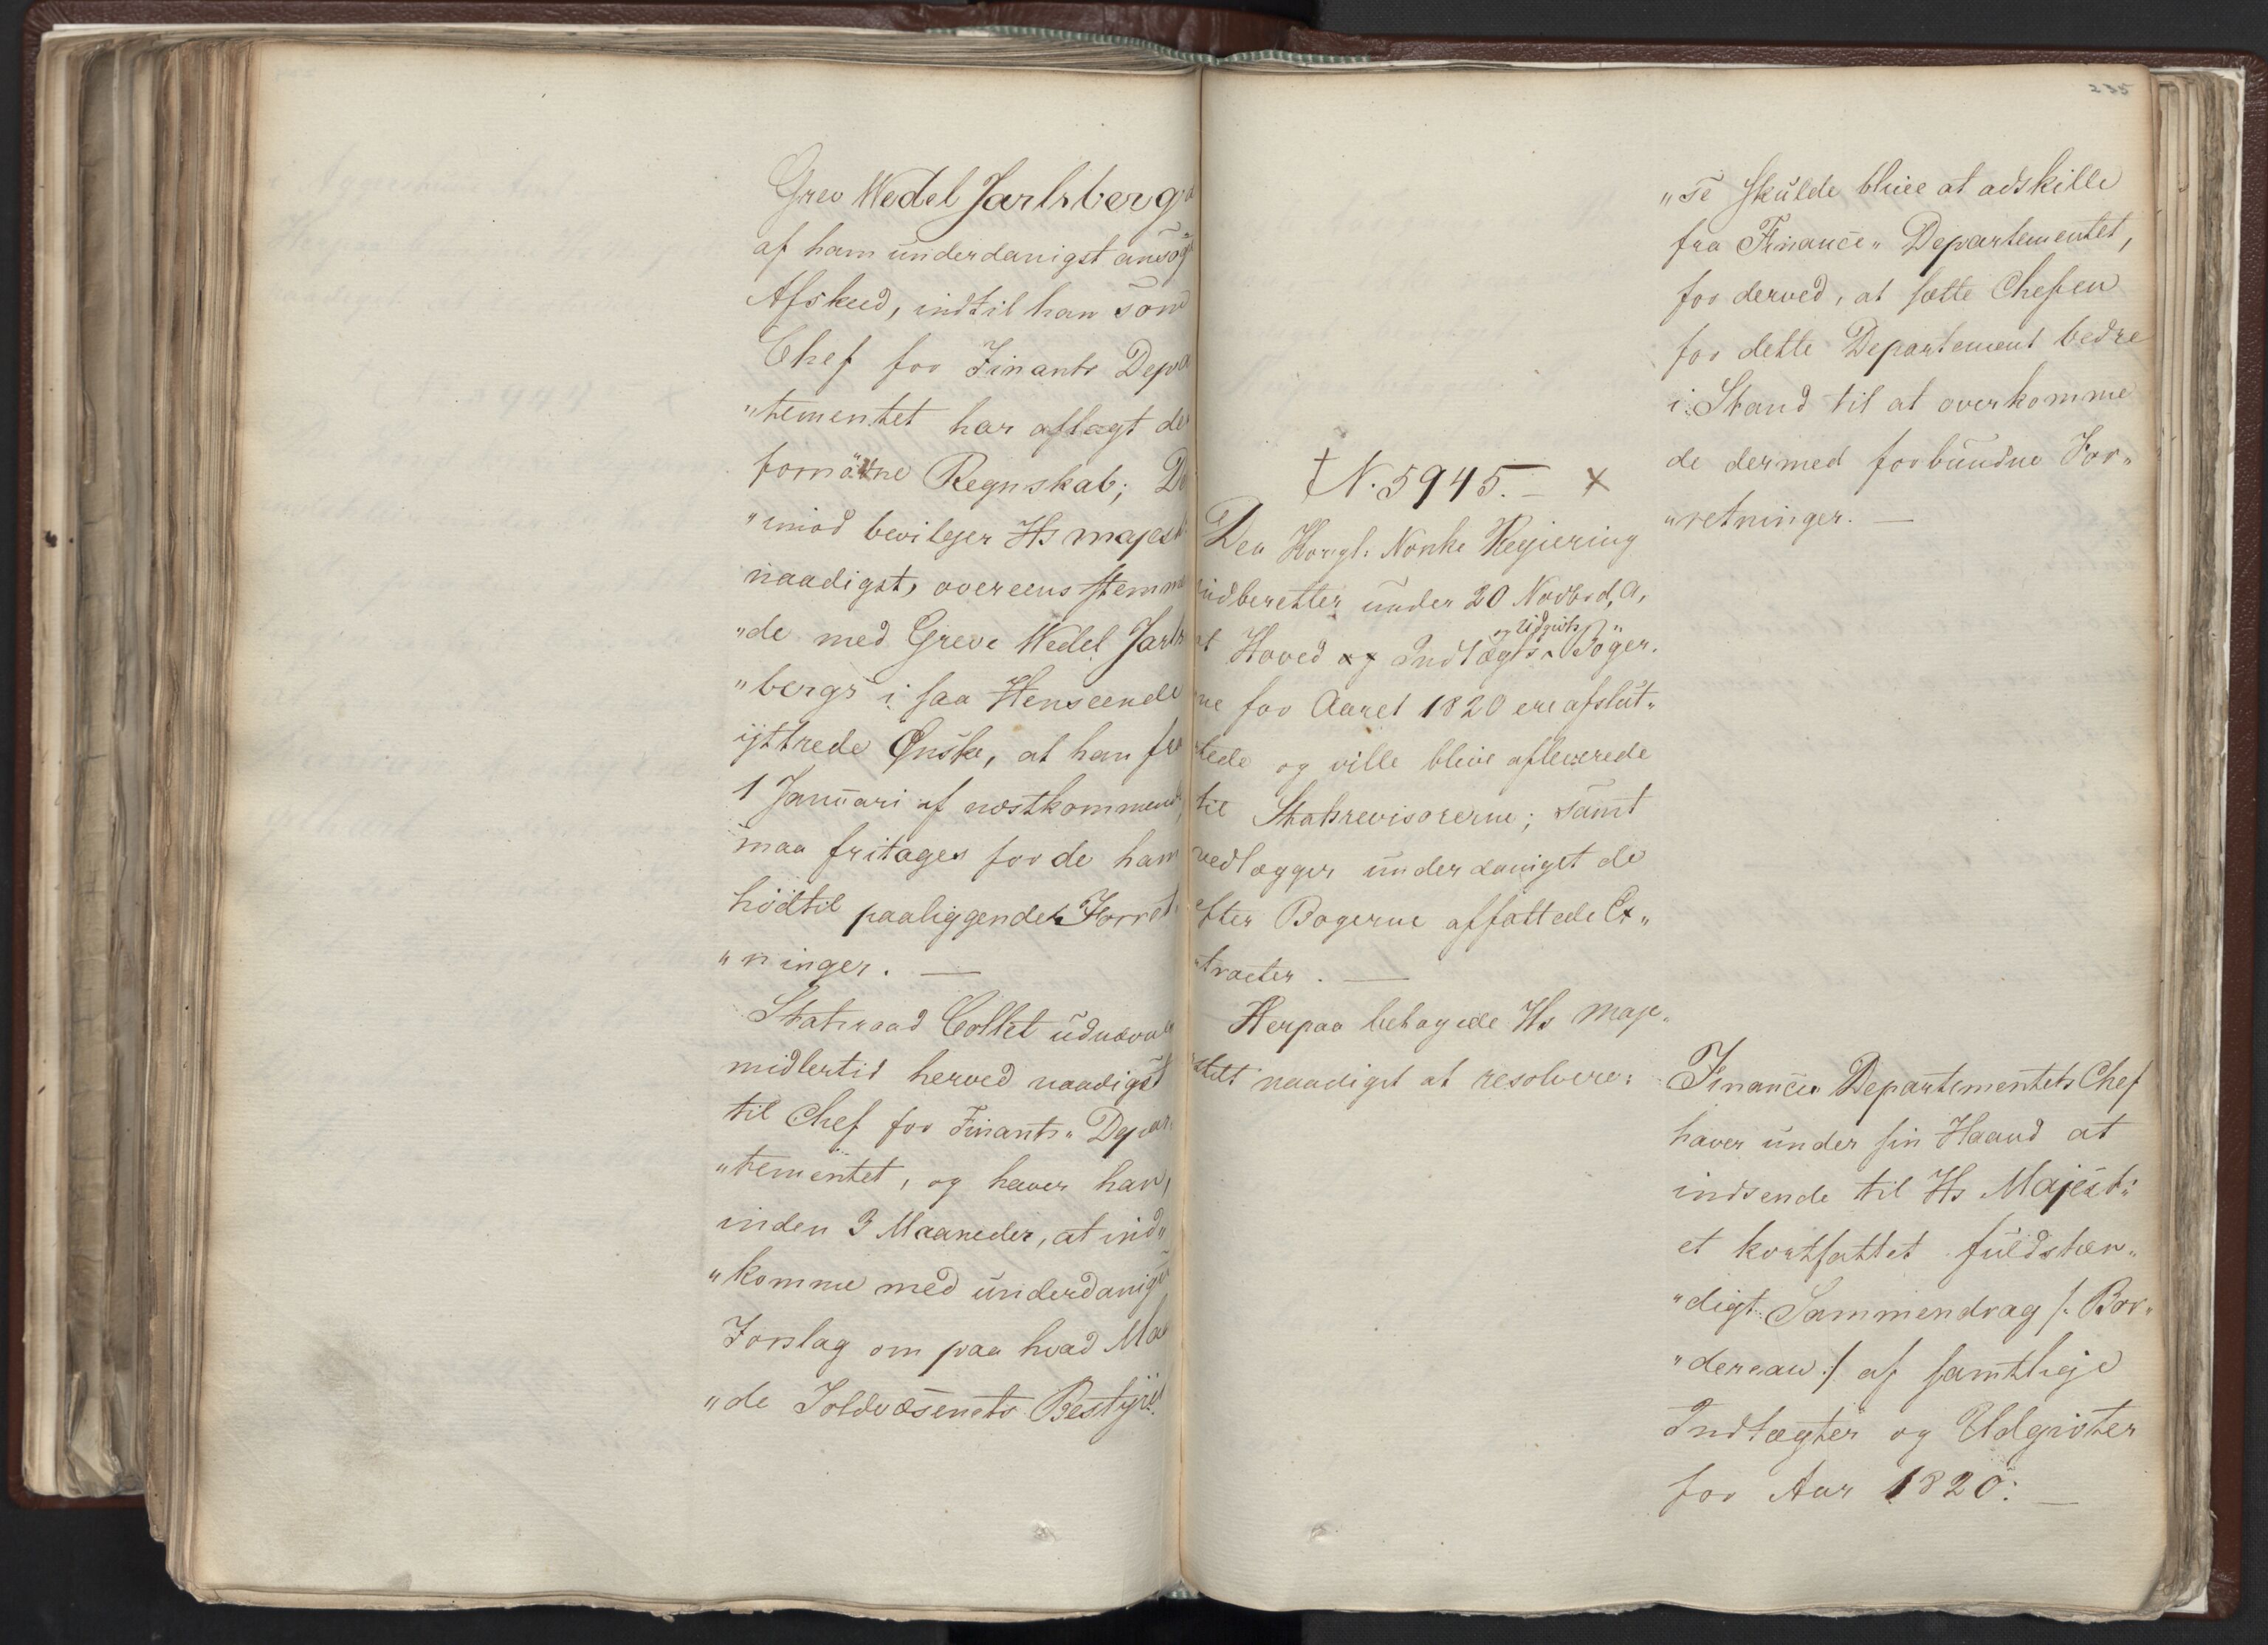 Grev Wedel Jarlsbergs
af ham underdanigst ansøgt
Afskeed, indtil han som
Chef for Finants Depa
"tementet har aflagt de
fornødne Regnskab; De
"imod bevilger Hs Majest:
naadigst, overeensstemme
"de med Greve Wedel Jarls
"bergs i saa Henseende
yttrede Ønske, at han fra
1 Januari af næstkommende,
maa fritages for de ham
hidtil paaliggende Forret
"ninger. —
Statsraad Collet udnævnes
midlertid herved naadigst
til Chef for Finants" Depar
"tementet, og haver han,
inden 3 Maaneder, at ind"
"komme med underdanigst
Forslag om paa hvad Maa
"de Toldvæsenets Bestyrel
235
† N. 5945. — x
Den Kongl: Norske Regjering
indberetter under 20 Novbr d, A,
at Hoved og Indtægts og Udgivts" Bøger.
ne for Aaret 1820 ere afslut"
tede og ville blive afleverede
til Statsrevisorerne; samt
vedlægger underdanigst de
efter Bøgerne affattede Ex"
"tracter. —
Herpaa behagede Hs Maje"
stet naadigst at resolvere:
"se skulde blive at adskille
fra Finance" Departementet,
for derved, at sætte Chefen
for dette Departement bedre
i Stand til at overkomme
de dermed forbundne For"
"retninger. —
Finance" Departementets Chef
haver under sin Haand at
indsende til Hs Majest:
et kortfattet fuldstæn"
"digt Sammendrag /: Bor"
"dereau :/ af samtlige
Indtægter og Udgivter
for Aar 1820: —